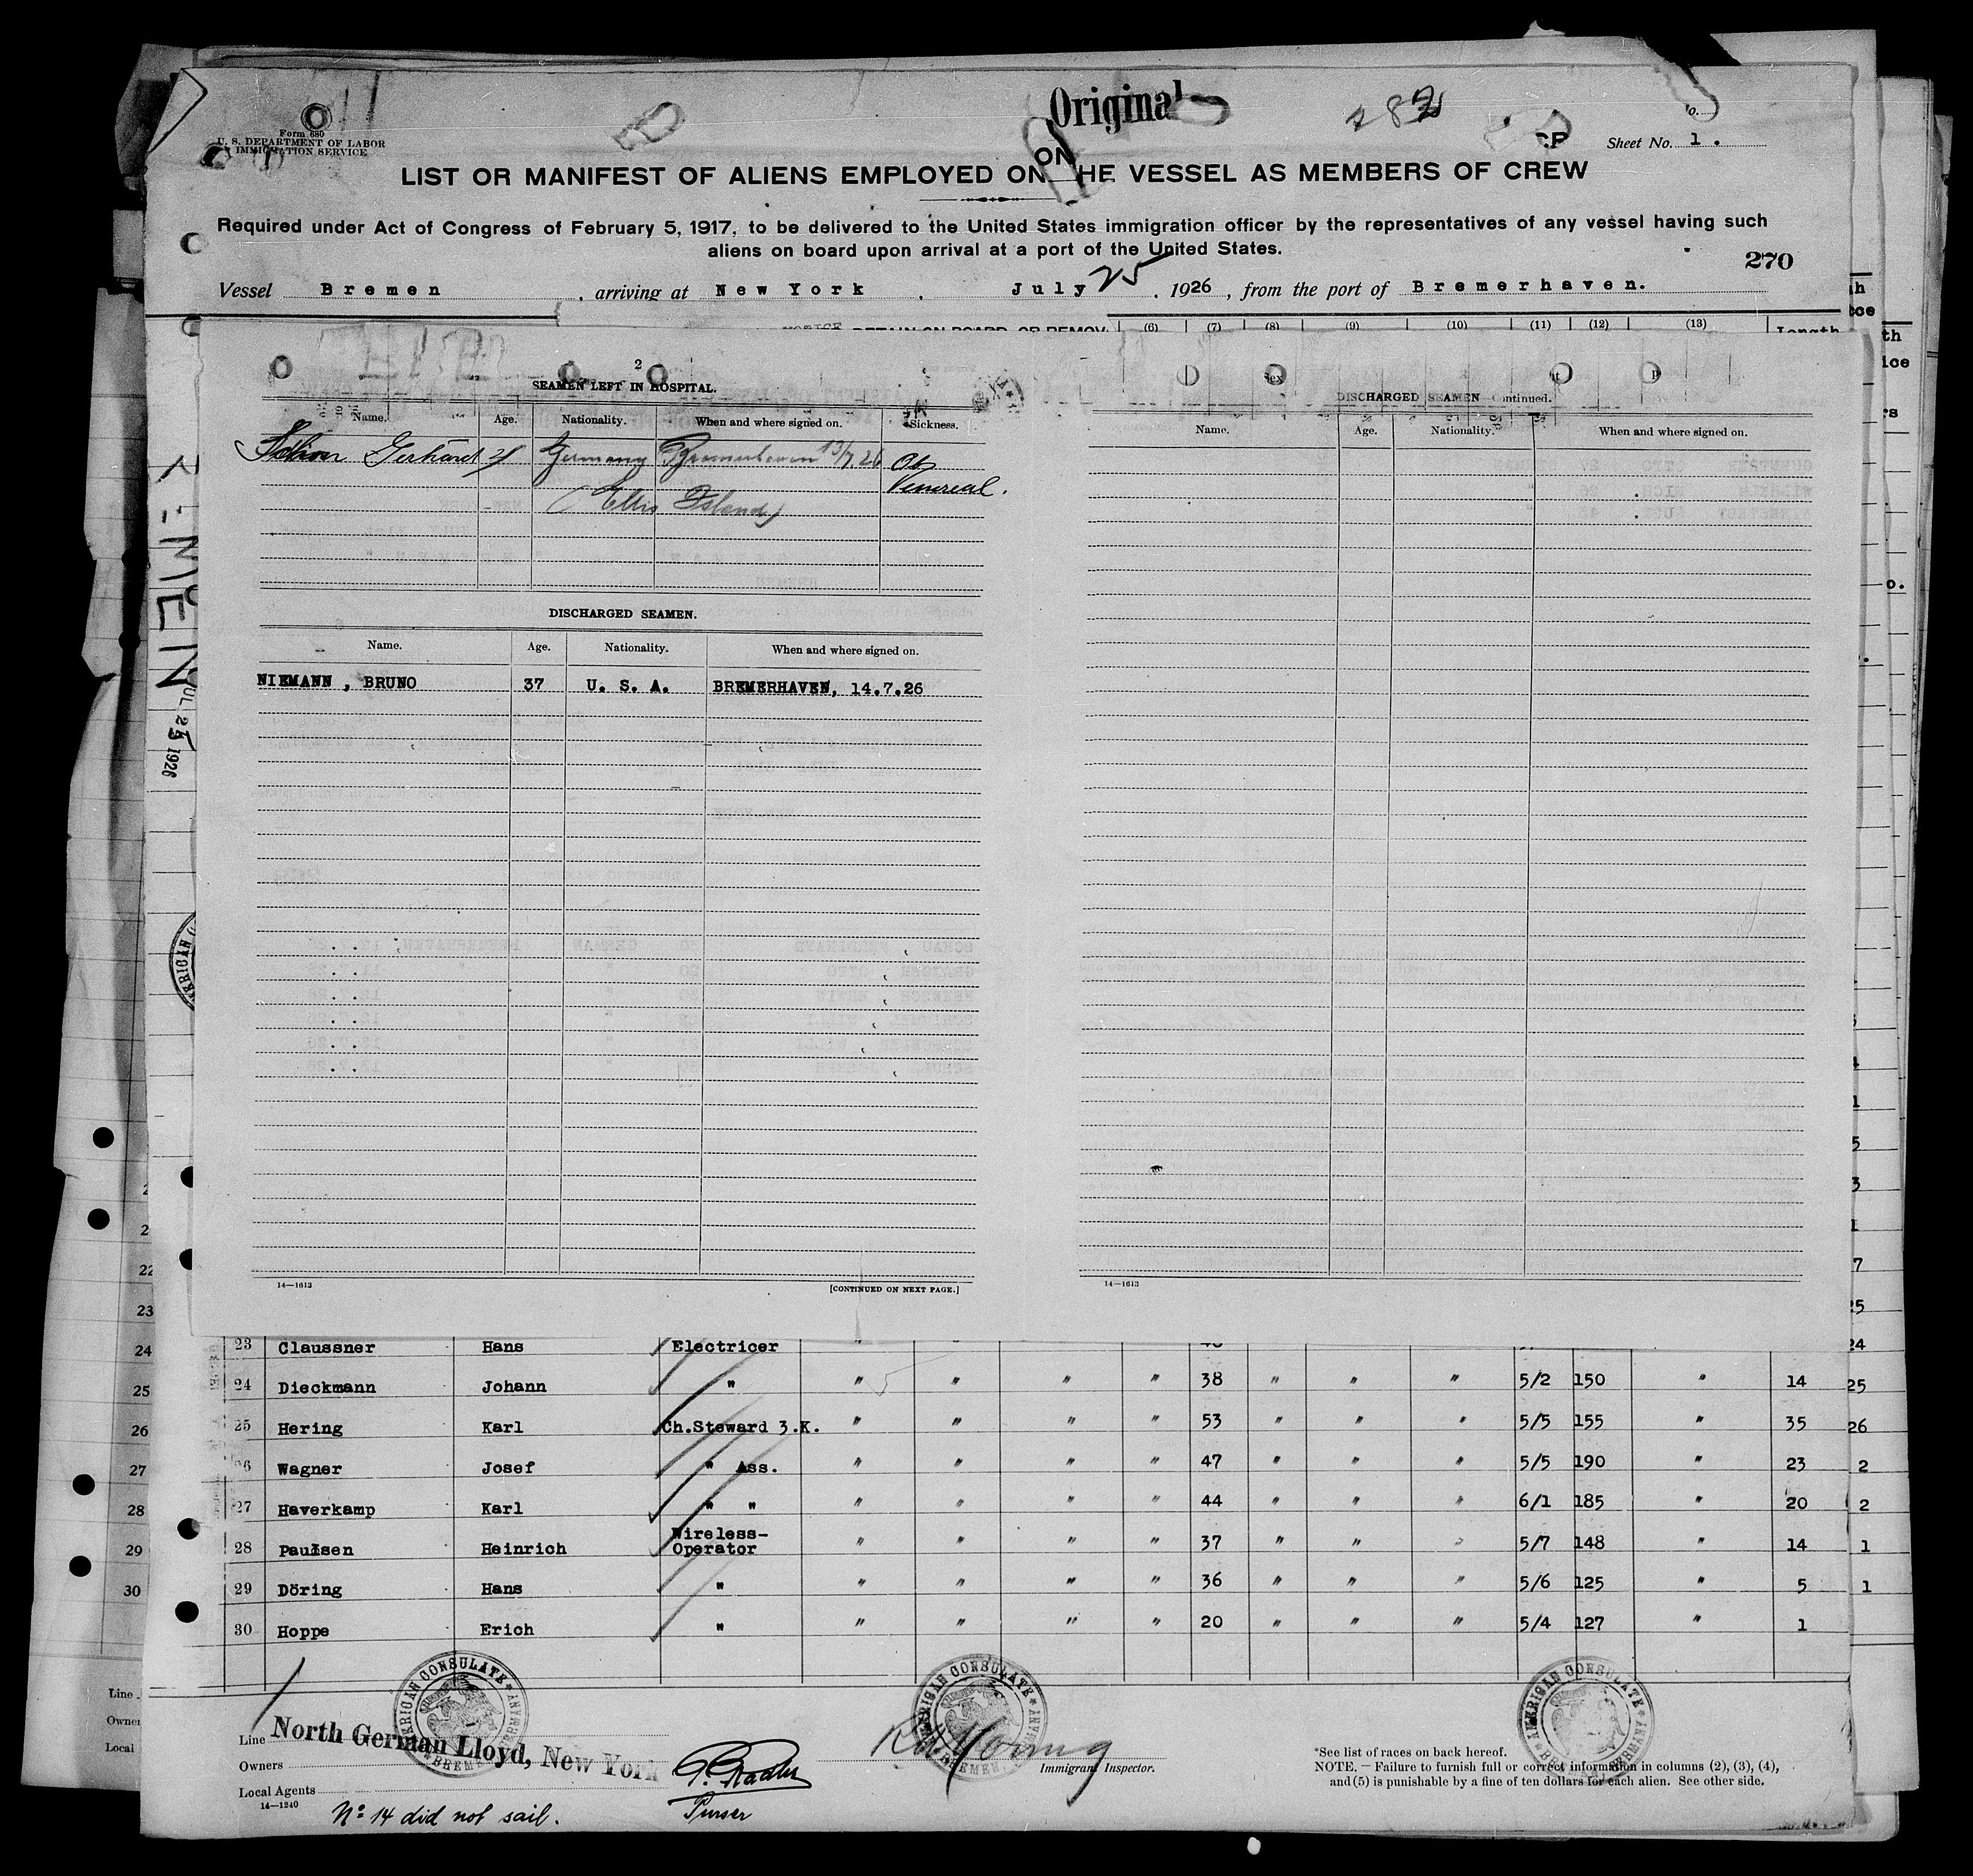 Original
282
Form 680
U. S. DEPARTMENT OF LABOR
IMMIGRATION SERVICE
Sheet No. 1.
ON
LIST OR MANIFEST OF ALIENS EMPLOYED ON THE VESSEL AS MEMBERS OF CREW
Required under Act of Congress of February 5, 1917, to be delivered to the United States immigration officer by the representatives of any vessel having such
aliens on board upon arrival at a port of the United States.
270
Vessel Bremen, arriving at New York, July 25, 1926, from the port of Bremerhaven.
(6) (7) (8) (9) (10) (11) (12) (13)
2
SEAMEN LEFT IN HOSPITAL.
Name. Age. Nationality. When and where signed on. Sickness.
Gerhard 21 Germany Bremerhaven 13/7 26
Venereal.
(Ellis Island)
DISCHARGED SEAMEN.
Name. Age. Nationality. When and where signed on.
NIEMANN, BRUNO 37 U. S. A. BREMERHAVEN, 14.7.26
14—1613 [CONTINUED ON NEXT PAGE.]
DISCHARGED SEAMEN—Continued.
Name. Age. Nationality. When and where signed on.
14—1613
BREMEN
JUL 25 1926
23 Claussner Hans Electricer
24 Dieckmann Johann " " " " " 38 " " " 5/2 150 " 14
25 Hering Karl Ch.Steward 3.K. " " " " 53 " " " 5/5 155 " 35
26 Wagner Josef " Ass. " " " " 47 " " " 5/5 190 " 23
27 Haverkamp Karl " " " " " " 44 " " " 6/1 185 " 20
28 Paulsen Heinrich Wireless-
Operator " " " " 37 " " " 5/7 148 " 14
29 Döring Hans " " " " " 36 " " " 5/6 125 " 5
30 Hoppe Erich " " " " " 20 " " " 5/4 127 " 1
AMERICAN CONSULATE
BREMEN GERMANY
AMERICAN CONSULATE
BREMEN GERMANY
AMERICAN CONSULATE
BREMEN GERMANY
Line North German Lloyd, New York
Owners
Local Agents
14—1240
Purser
Immigrant Inspector.
No 14 did not sail.
*See list of races on back hereof.
NOTE.—Failure to furnish full or correct information in columns (2), (3), (4),
and (5) is punishable by a fine of ten dollars for each alien. See other side.
22
23
24
25
26
27
28
29
30